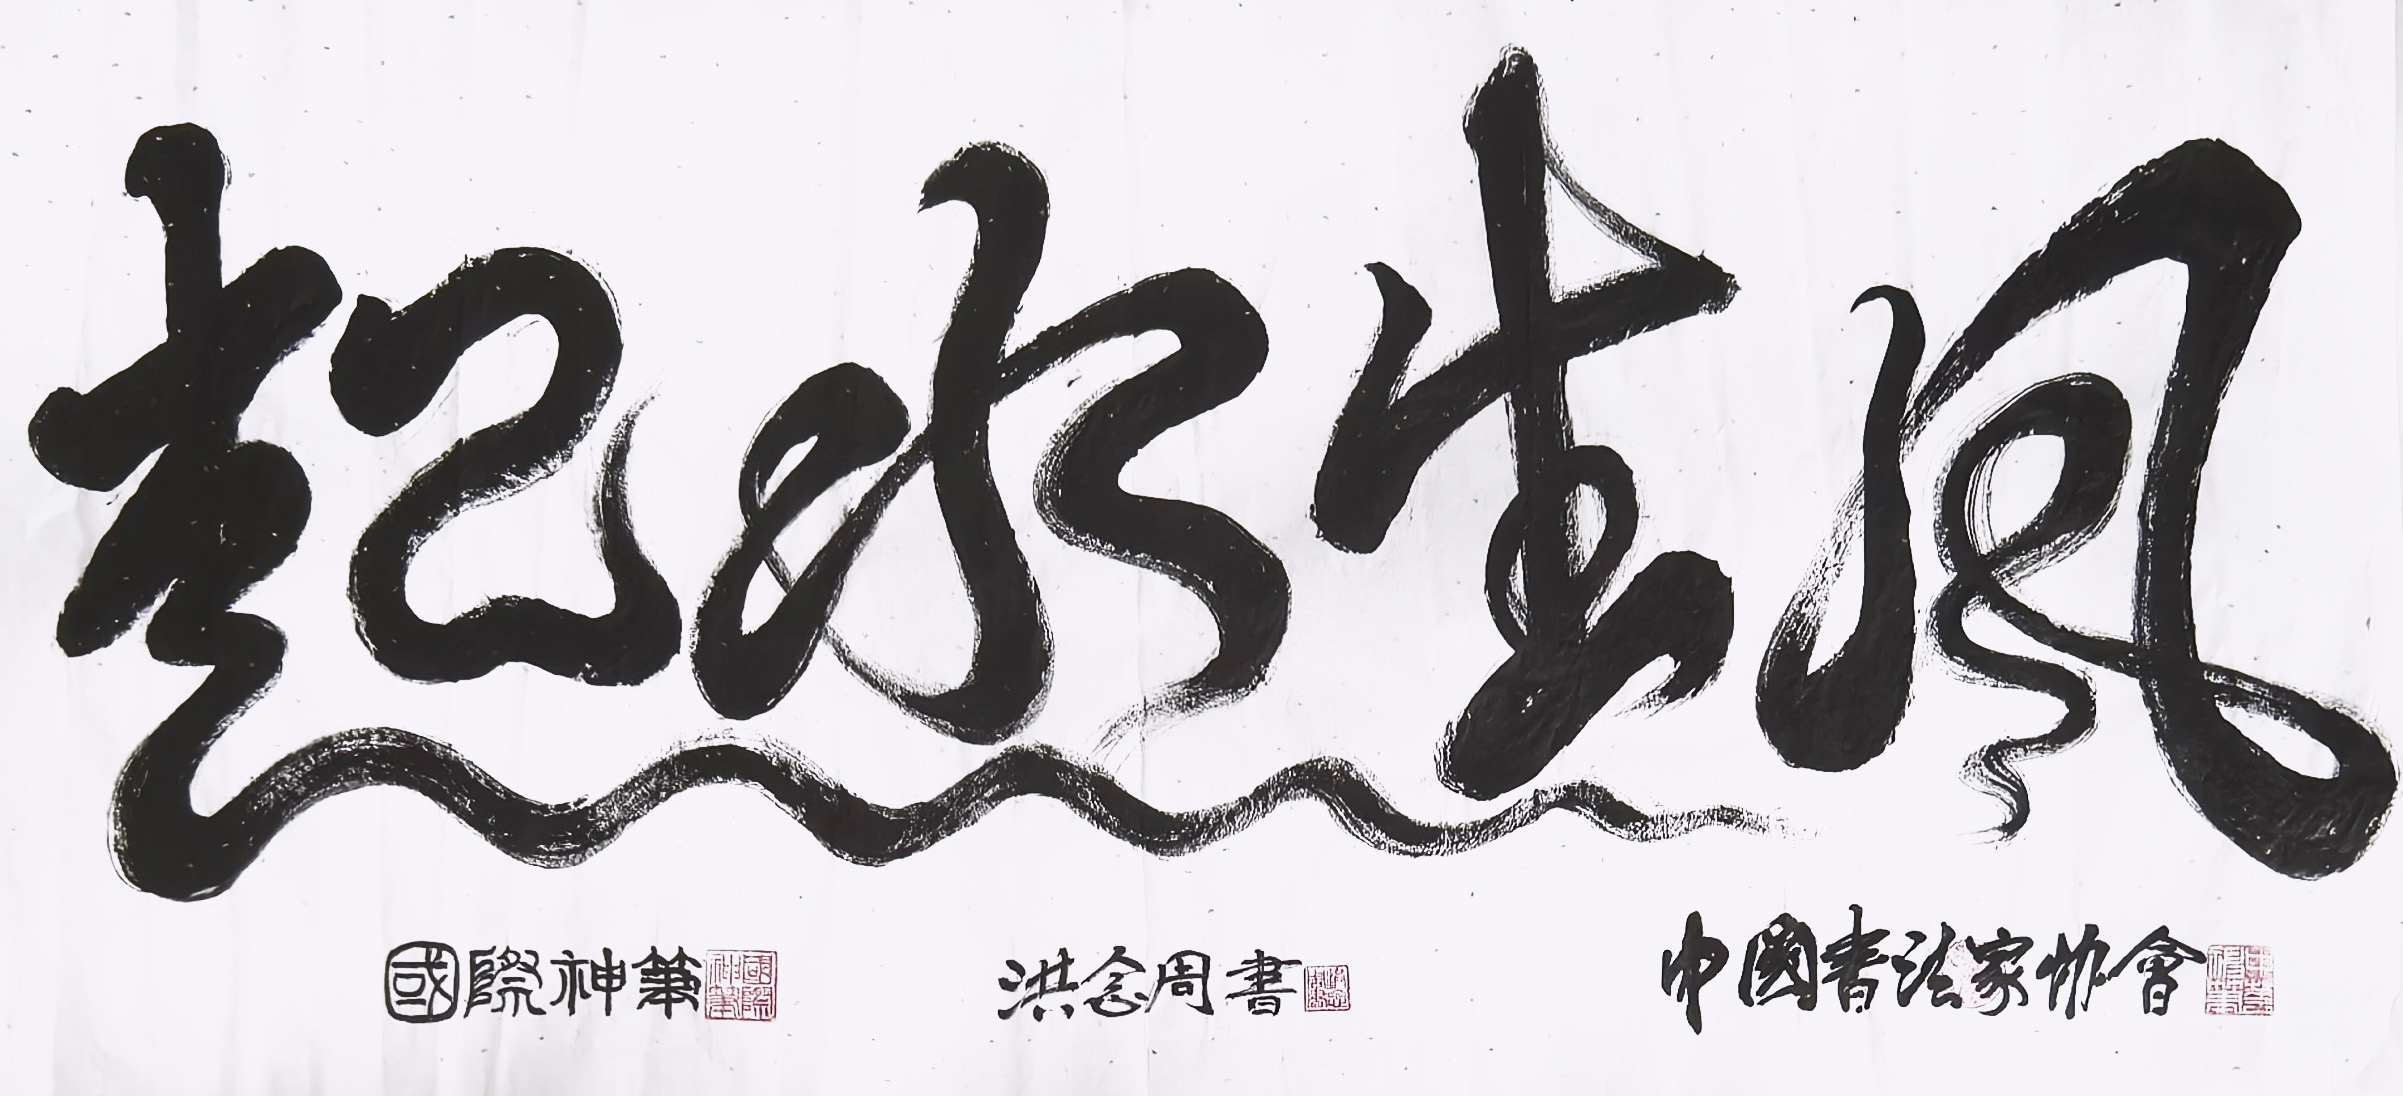 風生水起
中國書法家协會
洪念周書
國際神筆